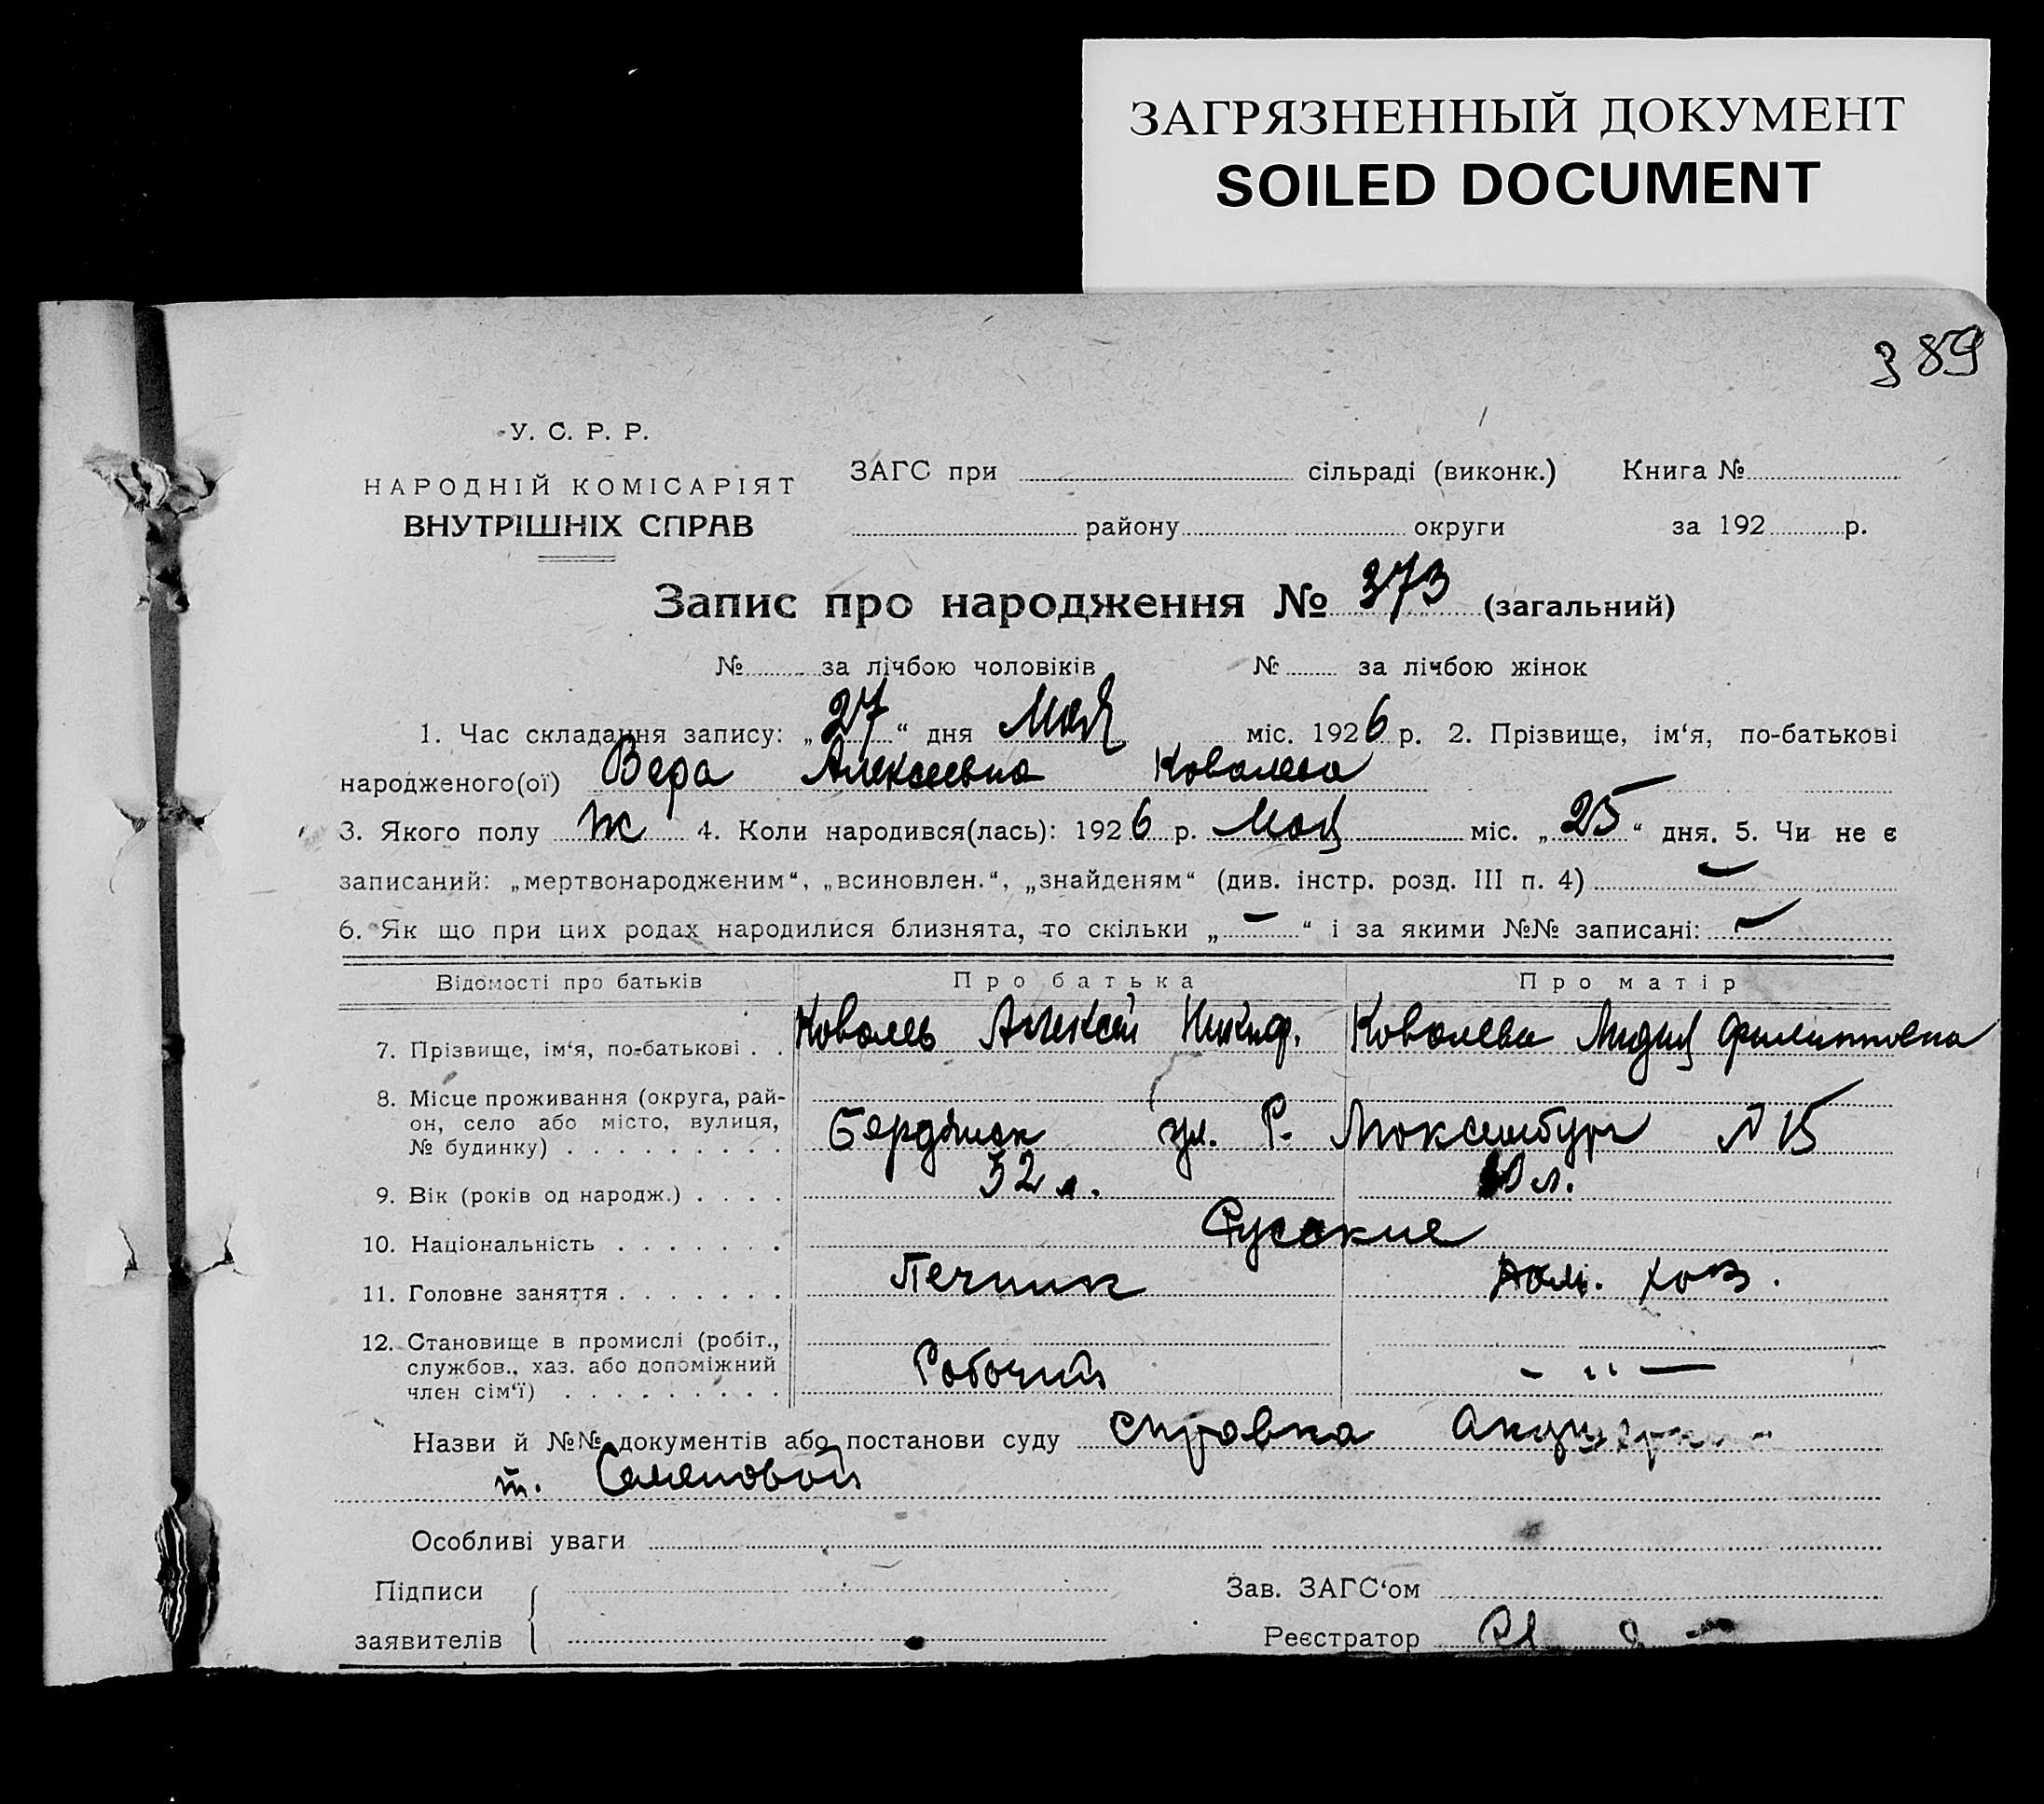 ЗАГРЯЗНЕННЫЙ ДОКУМЕНТ
SOILED DOCUMENT
389
У. С. Р. Р.
НАРОДНІЙ КОМІСАРІЯТ
ВНУТРІШНІХ СПРАВ
ЗАГС при сільраді (виконк.) Книга №
району округи за 192 р.
Запис про народження № 373 (загальний)
№ за лічбою чоловіків № за лічбою жінок
1. Час складання запису: „27“ дня Мая міс. 1926 р. 2. Прізвище, ім‘я, по-батькові
народженого(ої) Вера Алексеевна Ковалева
3. Якого полу Ж 4. Коли народився(лась): 1926 р. Мая міс. „25“ дня. 5. Чи не є
записаний: „мертвонародженим“, „всиновлен.“, „знайденям“ (див. інстр. розд. III п. 4) —
6. Як що при цих родах народилися близнята, то скільки „—“ і за якими №№ записані: —
Відомості про батьків Про батька Про матір
7. Прізвище, ім‘я, по-батькові . . Ковалев Алексей Никиф. Ковалева Лидия Филипповна
8. Місце проживання (округа, рай-
он, село або місто, вулиця,
№ будинку) . . . . . . . . . Бердянск ул. Р. Люксембург № 15
9. Вік (років од народж.) . . . . 32 л. л.
10. Національність . . . . . . . Русские
11. Головне заняття . . . . . . . Печник Дом. хоз.
12. Становище в промислі (робіт.,
службов., хаз. або допоміжний
член сім‘ї) . . . . . . . . . Рабочий - " —
Назви й №№ документів або постанови суду справка
т. Семеновой
Особливі уваги
Підписи Зав. ЗАГС‘ом
заявителів Реєстратор